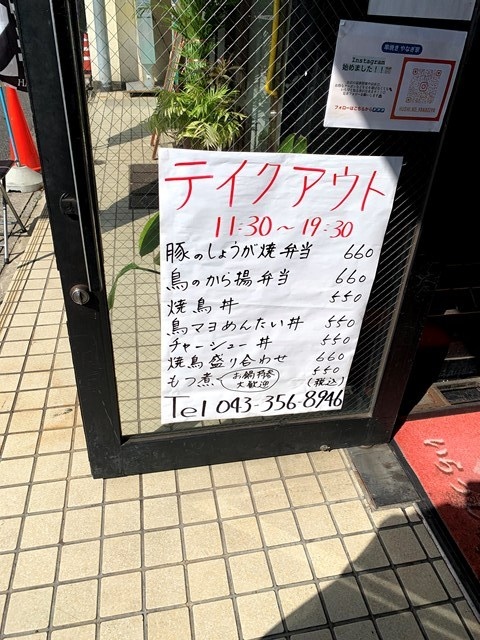 串焼き やなぎ家
Instagram
始めました!!
フォローはこちらから
テイクアウト
11:30〜19:30
豚のしょうが焼弁当 660
鳥のから揚弁当 660
焼鳥丼 550
鳥マヨめんたい丼 550
チャーシュー丼 550
焼鳥盛り合わせ 660
もつ煮(お鍋持参大歓迎) 550
(税込)
Tel 043-356-8946
いらっ